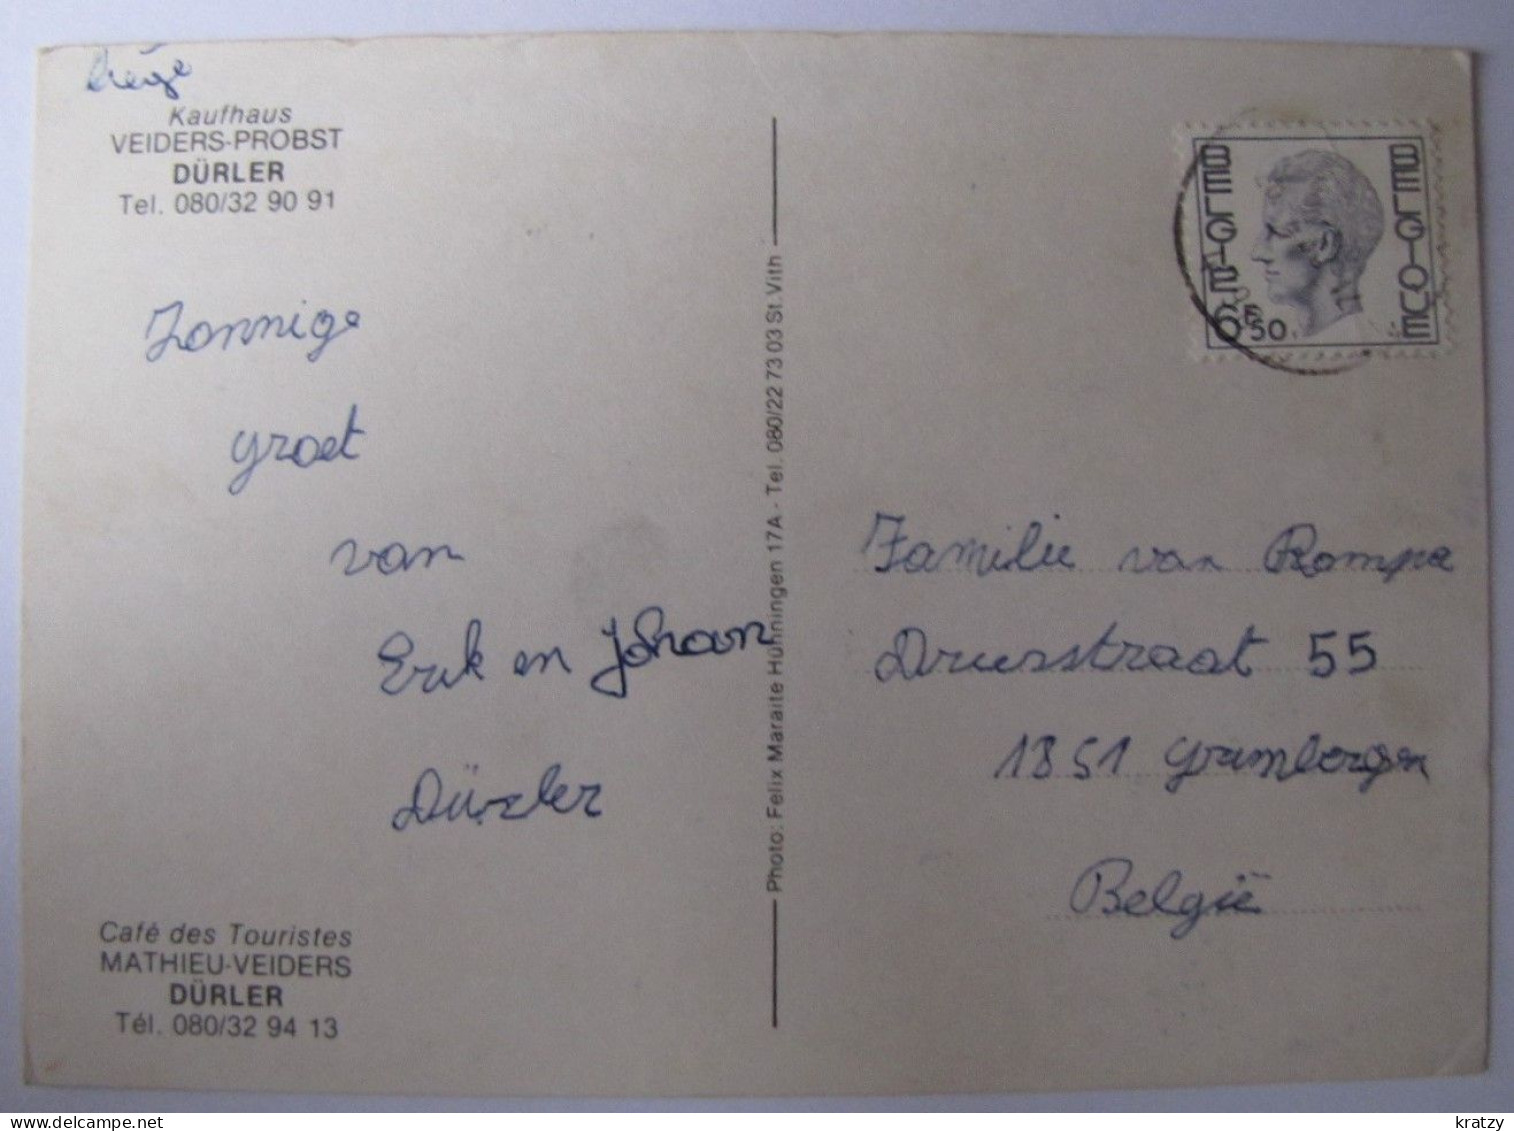 Liège
Kaufhaus
VEIDERS-PROBST
DÜRLER
Tel. 080/32 90 91
Zonnige
groet
van
Erik en Johan
Dürler
Café des Touristes
MATHIEU-VEIDERS
DÜRLER
Tél. 080/32 94 13
Photo: Felix Maraite Hünningen 17A - Tel. 080/22 73 03 St. Vith
BELGIE
BELGIQUE
6F50
Familie van Rompa
Driesstraat 55
1851 Grimbergen
België
kratzy